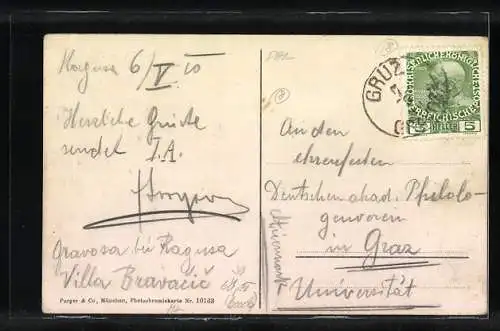 Ragusa 6/V 10
Herzliche Grüße
sendet I.A.
Gravosa bei Ragusa
Villa Bravačić
Purger & Co., München, Photochromiekarte Nr. 10163
GRUŽ
5 HELLER 5
An den
ehrenfesten
Deutschen akad. Philolo-
genverein
in Graz
Universität